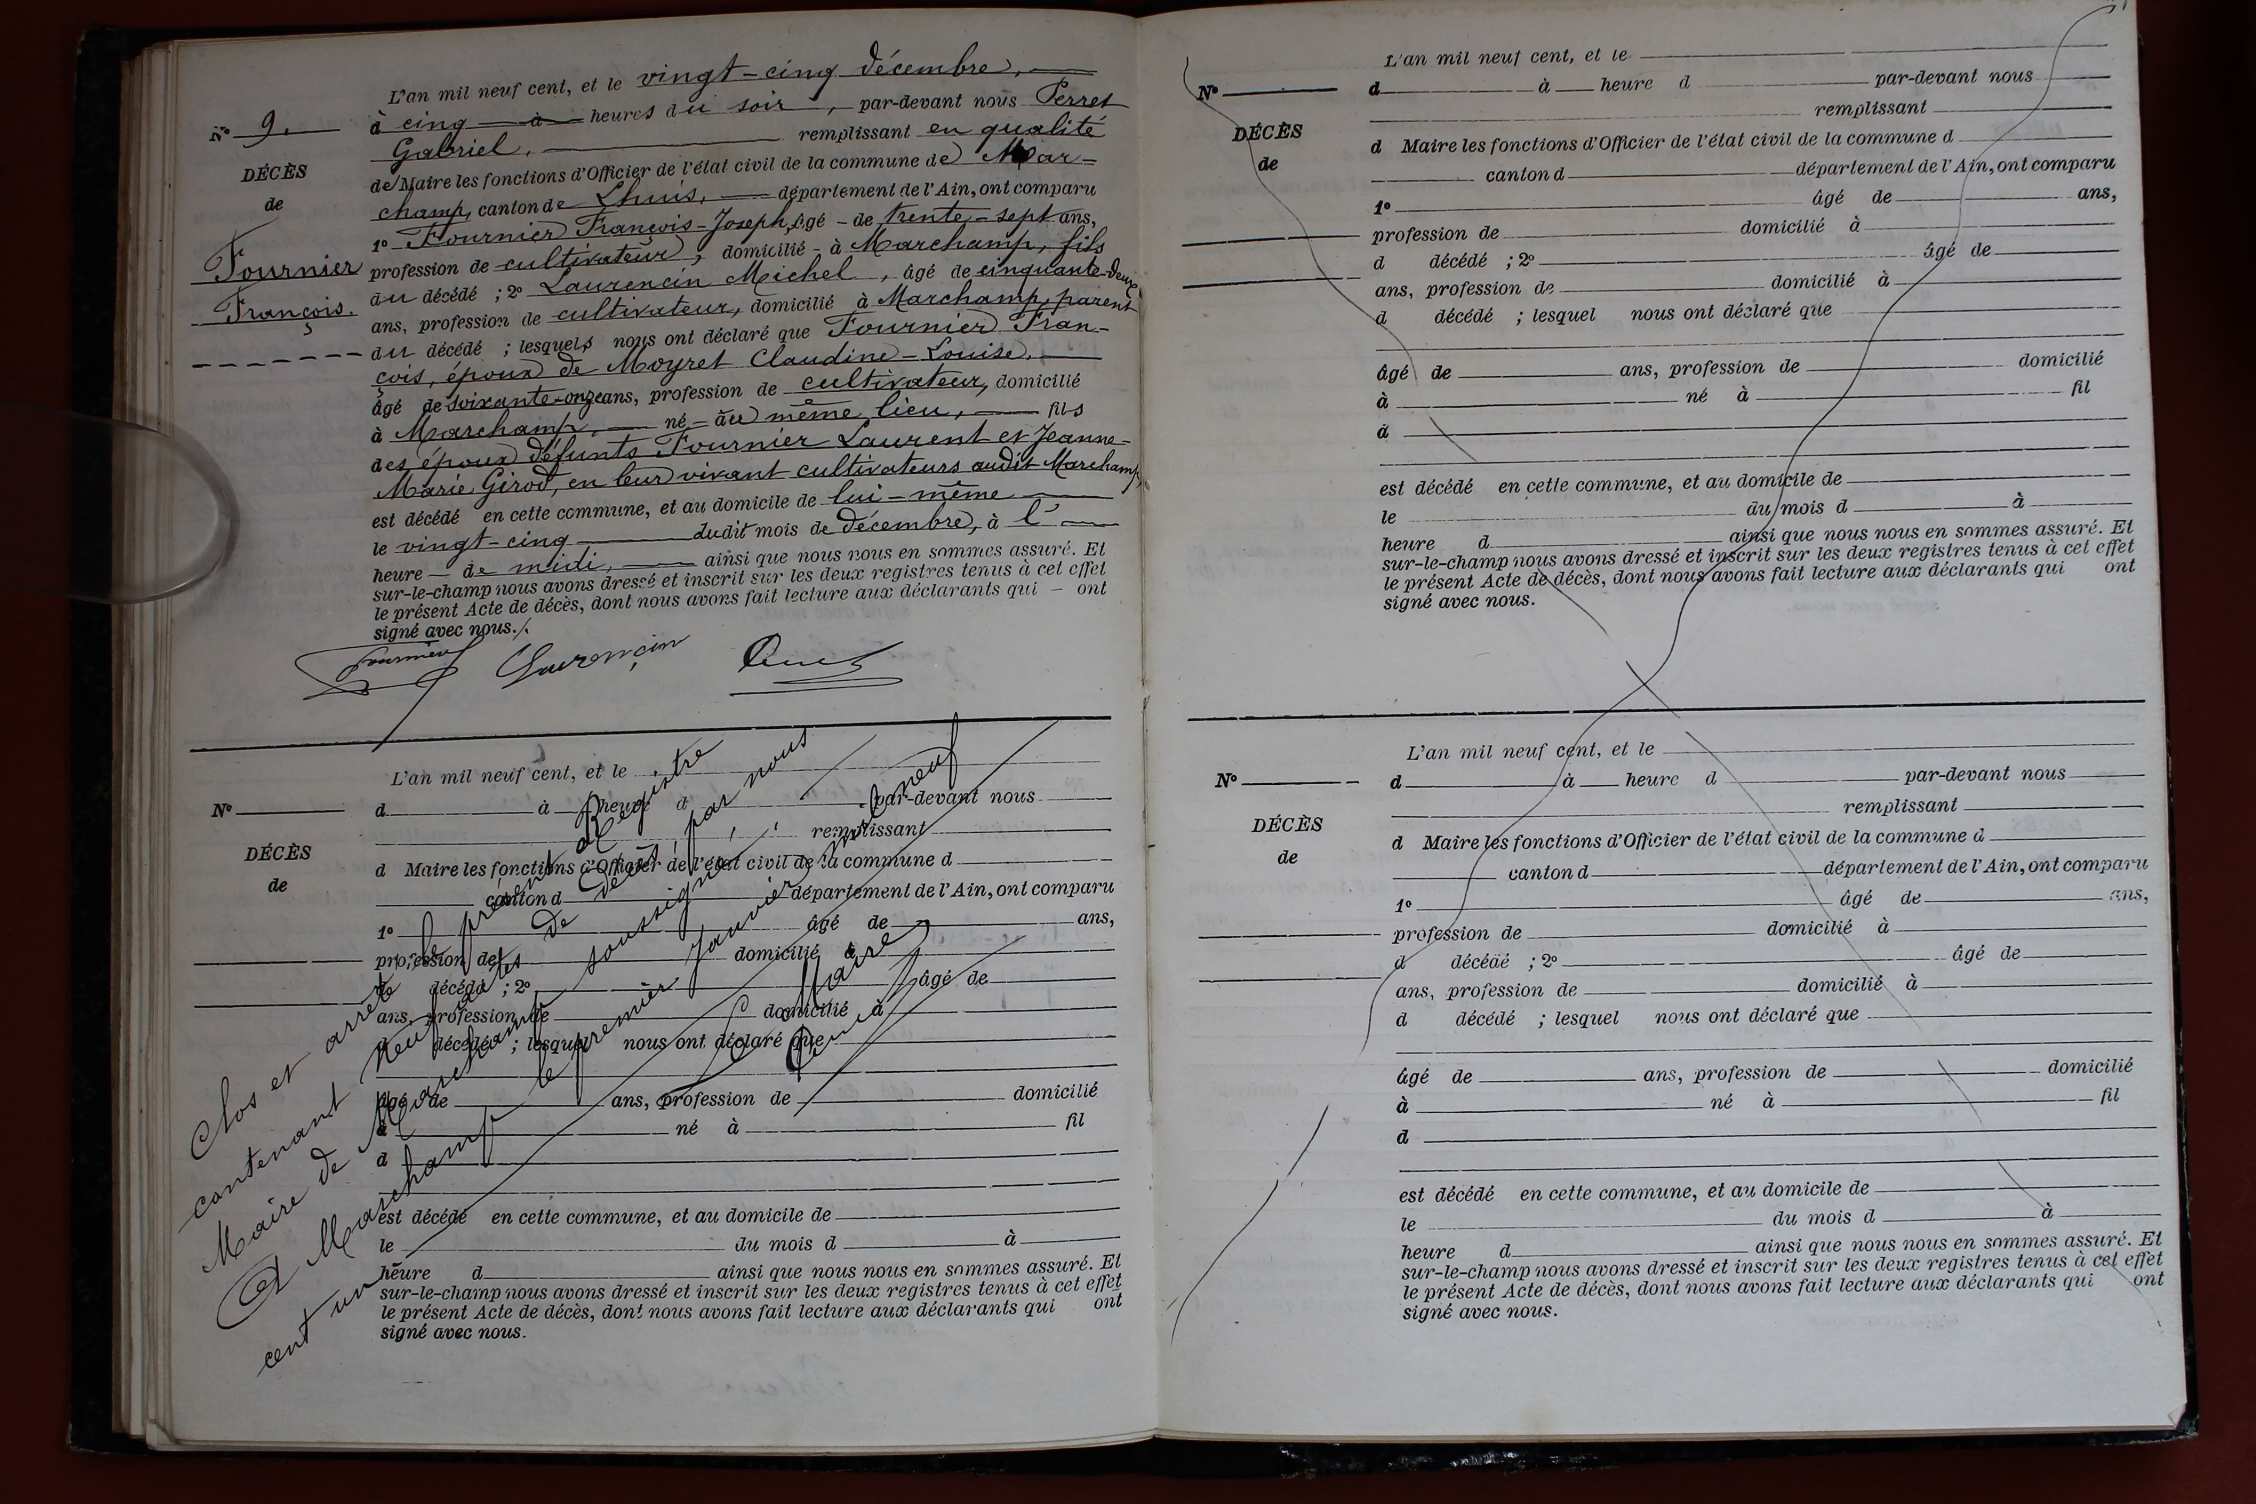 L'an mil neuf cent, et le vingt-cinq décembre,
à cinq à heures du soir, par-devant nous Perret
Gabriel, remplissant en qualité
de Maire les fonctions d'Officier de l'état civil de la commune de Mar=
champ, canton de Lhuis, département de l'Ain, ont comparu
1º Fournier François-Joseph, âgé - de trente-sept ans,
profession de cultivateur, domicilié - à Marchamp, fils
du décédé ; 2º Laurencin Michel, âgé de cinquante-deux
ans, profession de cultivateur, domicilié à Marchamp, parent
du décédé ; lesquels nous ont déclaré que Fournier Fran-
çois, époux de Moyret Claudine-Louise,
âgé de soixante-onze ans, profession de cultivateur, domicilié
à Marchamp, né - au même lieu, fils
des époux défunts Fournier Laurent et Jeanne-
Marie Girod, en leur vivant cultivateurs audit Marchamp,
est décédé en cette commune, et au domicile de lui-même
le vingt-cinq dudit mois de décembre, à l'
heure - de midi, ainsi que nous nous en sommes assuré. Et
sur-le-champ nous avons dressé et inscrit sur les deux registres tenus à cet effet
le présent Acte de décès, dont nous avons fait lecture aux déclarants qui - ont
signé avec nous./.
Nº 9.
DÉCÈS
de
Fournier
François.
Fournier Laurencin Perret
L'an mil neuf cent, et le
Nº
d à heure d par-devant nous
remplissant
DÉCÈS
d Maire les fonctions d'Officier de l'état civil de la commune d
de
canton d département de l'Ain, ont comparu
1º âgé de ans,
profession de domicilié à
d décédé ; 2º âgé de
ans, profession de domicilié à
d décédé ; lesquel nous ont déclaré que
âgé de ans, profession de domicilié
à né à fil
d
est décédé en cette commune, et au domicile de
le du mois d à
heure d ainsi que nous nous en sommes assuré. Et
sur-le-champ nous avons dressé et inscrit sur les deux registres tenus à cet effet
le présent Acte de décès, dont nous avons fait lecture aux déclarants qui ont
signé avec nous.
Clos et arrêté le présent Registre
contenant neuf actes de décès, par nous
Maire de Marchamp soussigné,
A Marchamp le premier Janvier mil neuf
cent un
Le Maire
Perret
L'an mil neuf cent, et le
Nº
d à heure d par-devant nous
remplissant
DÉCÈS
d Maire les fonctions d'Officier de l'état civil de la commune d
de
canton d département de l'Ain, ont comparu
1º âgé de ans,
profession de domicilié à
d décédé ; 2º âgé de
ans, profession de domicilié à
d décédé ; lesquel nous ont déclaré que
âgé de ans, profession de domicilié
à né à fil
d
est décédé en cette commune, et au domicile de
le du mois d à
heure d ainsi que nous nous en sommes assuré. Et
sur-le-champ nous avons dressé et inscrit sur les deux registres tenus à cet effet
le présent Acte de décès, dont nous avons fait lecture aux déclarants qui ont
signé avec nous.
L'an mil neuf cent, et le
Nº
d à heure d par-devant nous
remplissant
DÉCÈS
d Maire les fonctions d'Officier de l'état civil de la commune d
de
canton d département de l'Ain, ont comparu
1º âgé de ans,
profession de domicilié à
d décédé ; 2º âgé de
ans, profession de domicilié à
d décédé ; lesquel nous ont déclaré que
âgé de ans, profession de domicilié
à né à fil
d
est décédé en cette commune, et au domicile de
le du mois d à
heure d ainsi que nous nous en sommes assuré. Et
sur-le-champ nous avons dressé et inscrit sur les deux registres tenus à cet effet
le présent Acte de décès, dont nous avons fait lecture aux déclarants qui ont
signé avec nous.